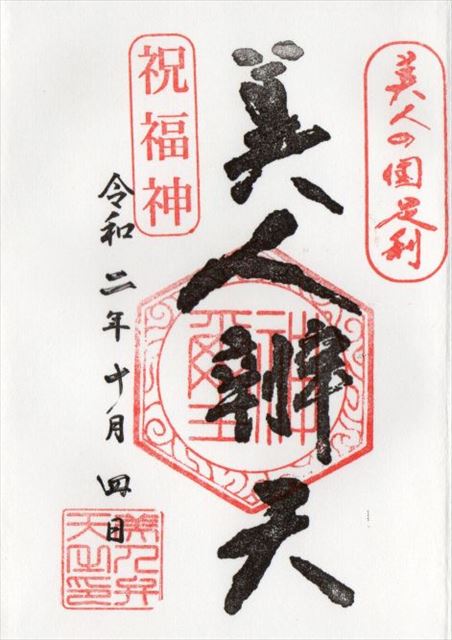 美人の国足利
美人辨天
祝福神
令和二年十月四日
美人弁
天之印